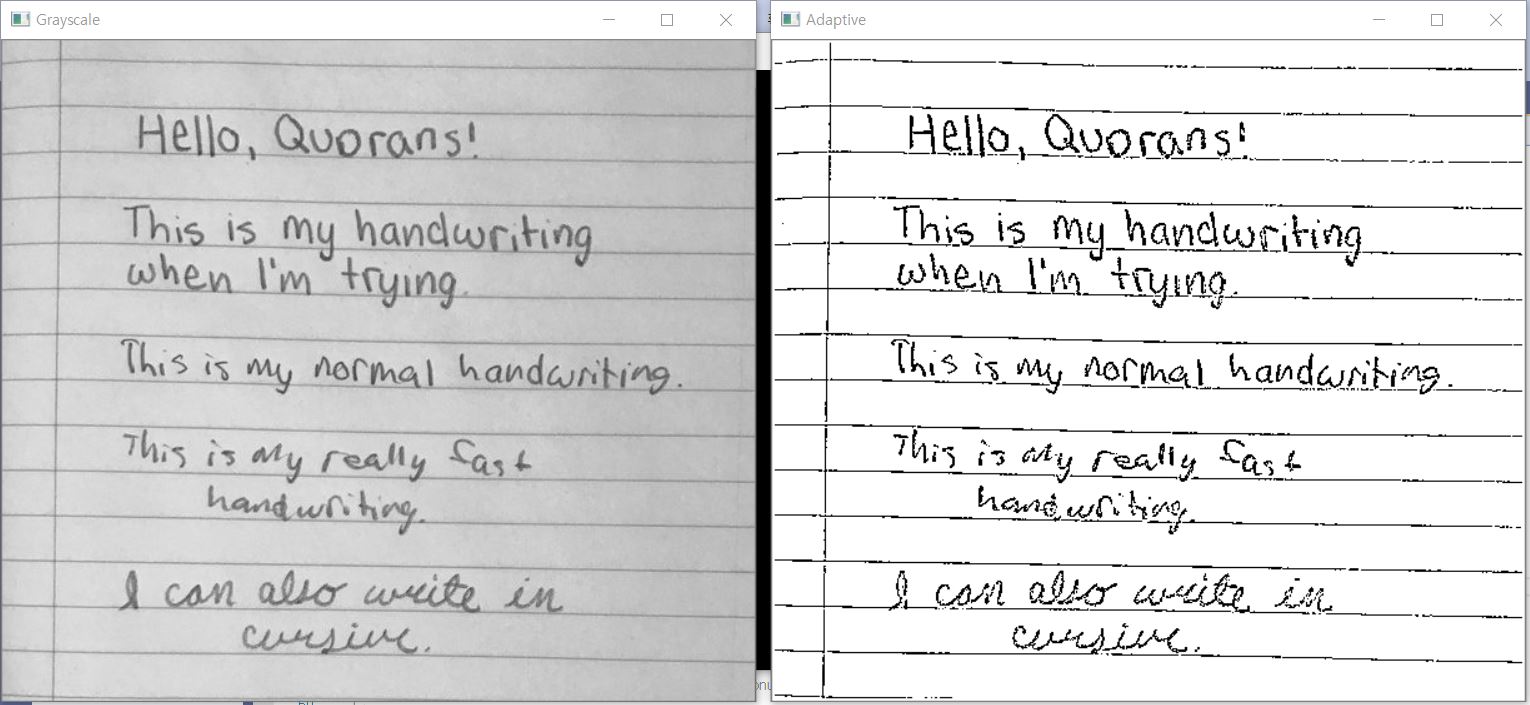 Grayscale
Hello, Quorans!
This is my handwriting
when I'm trying.
This is my normal handwriting.
This is my really fast
handwriting.
I can also write in
cursive.
Adaptive
Hello, Quorans!
This is my handwriting
when I'm trying.
This is my normal handwriting.
This is my really fast
handwriting.
I can also write in
cursive.